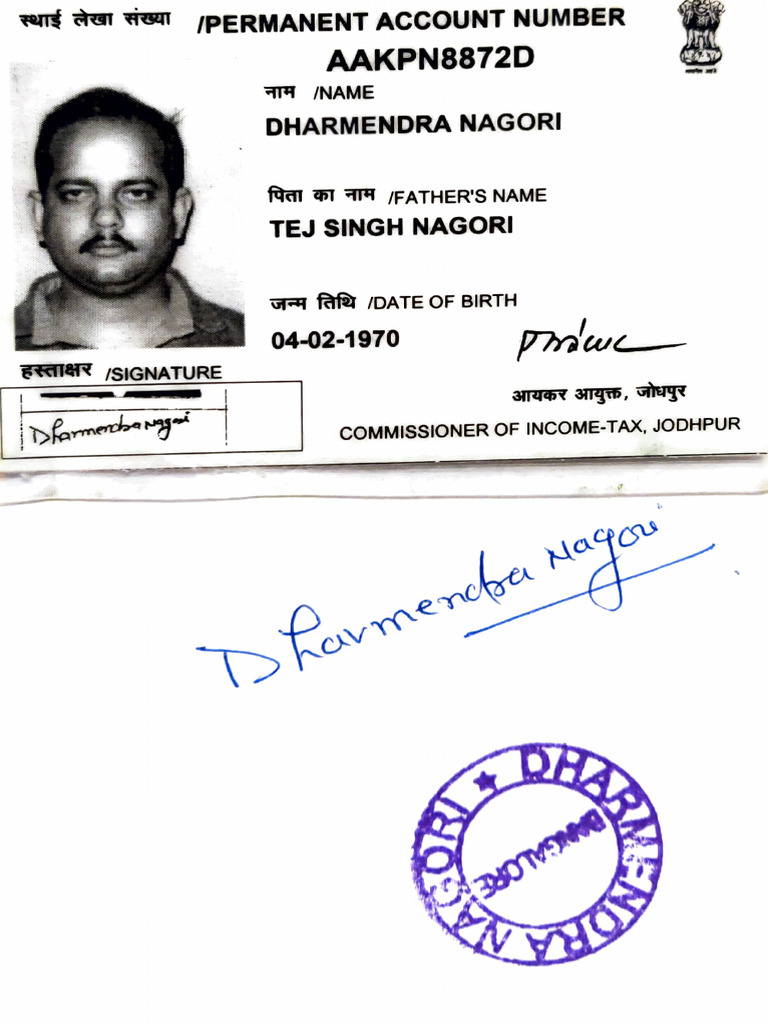 स्थाई लेखा संख्या /PERMANENT ACCOUNT NUMBER
AAKPN8872D
नाम /NAME
DHARMENDRA NAGORI
पिता का नाम /FATHER'S NAME
TEJ SINGH NAGORI
जन्म तिथि /DATE OF BIRTH
04-02-1970
हस्ताक्षर /SIGNATURE
Dharmendra Nagori
आयकर आयुक्त, जोधपुर
COMMISSIONER OF INCOME-TAX, JODHPUR
Dharmendra Nagori
DHARMENDRA NAGORI
BANGALORE